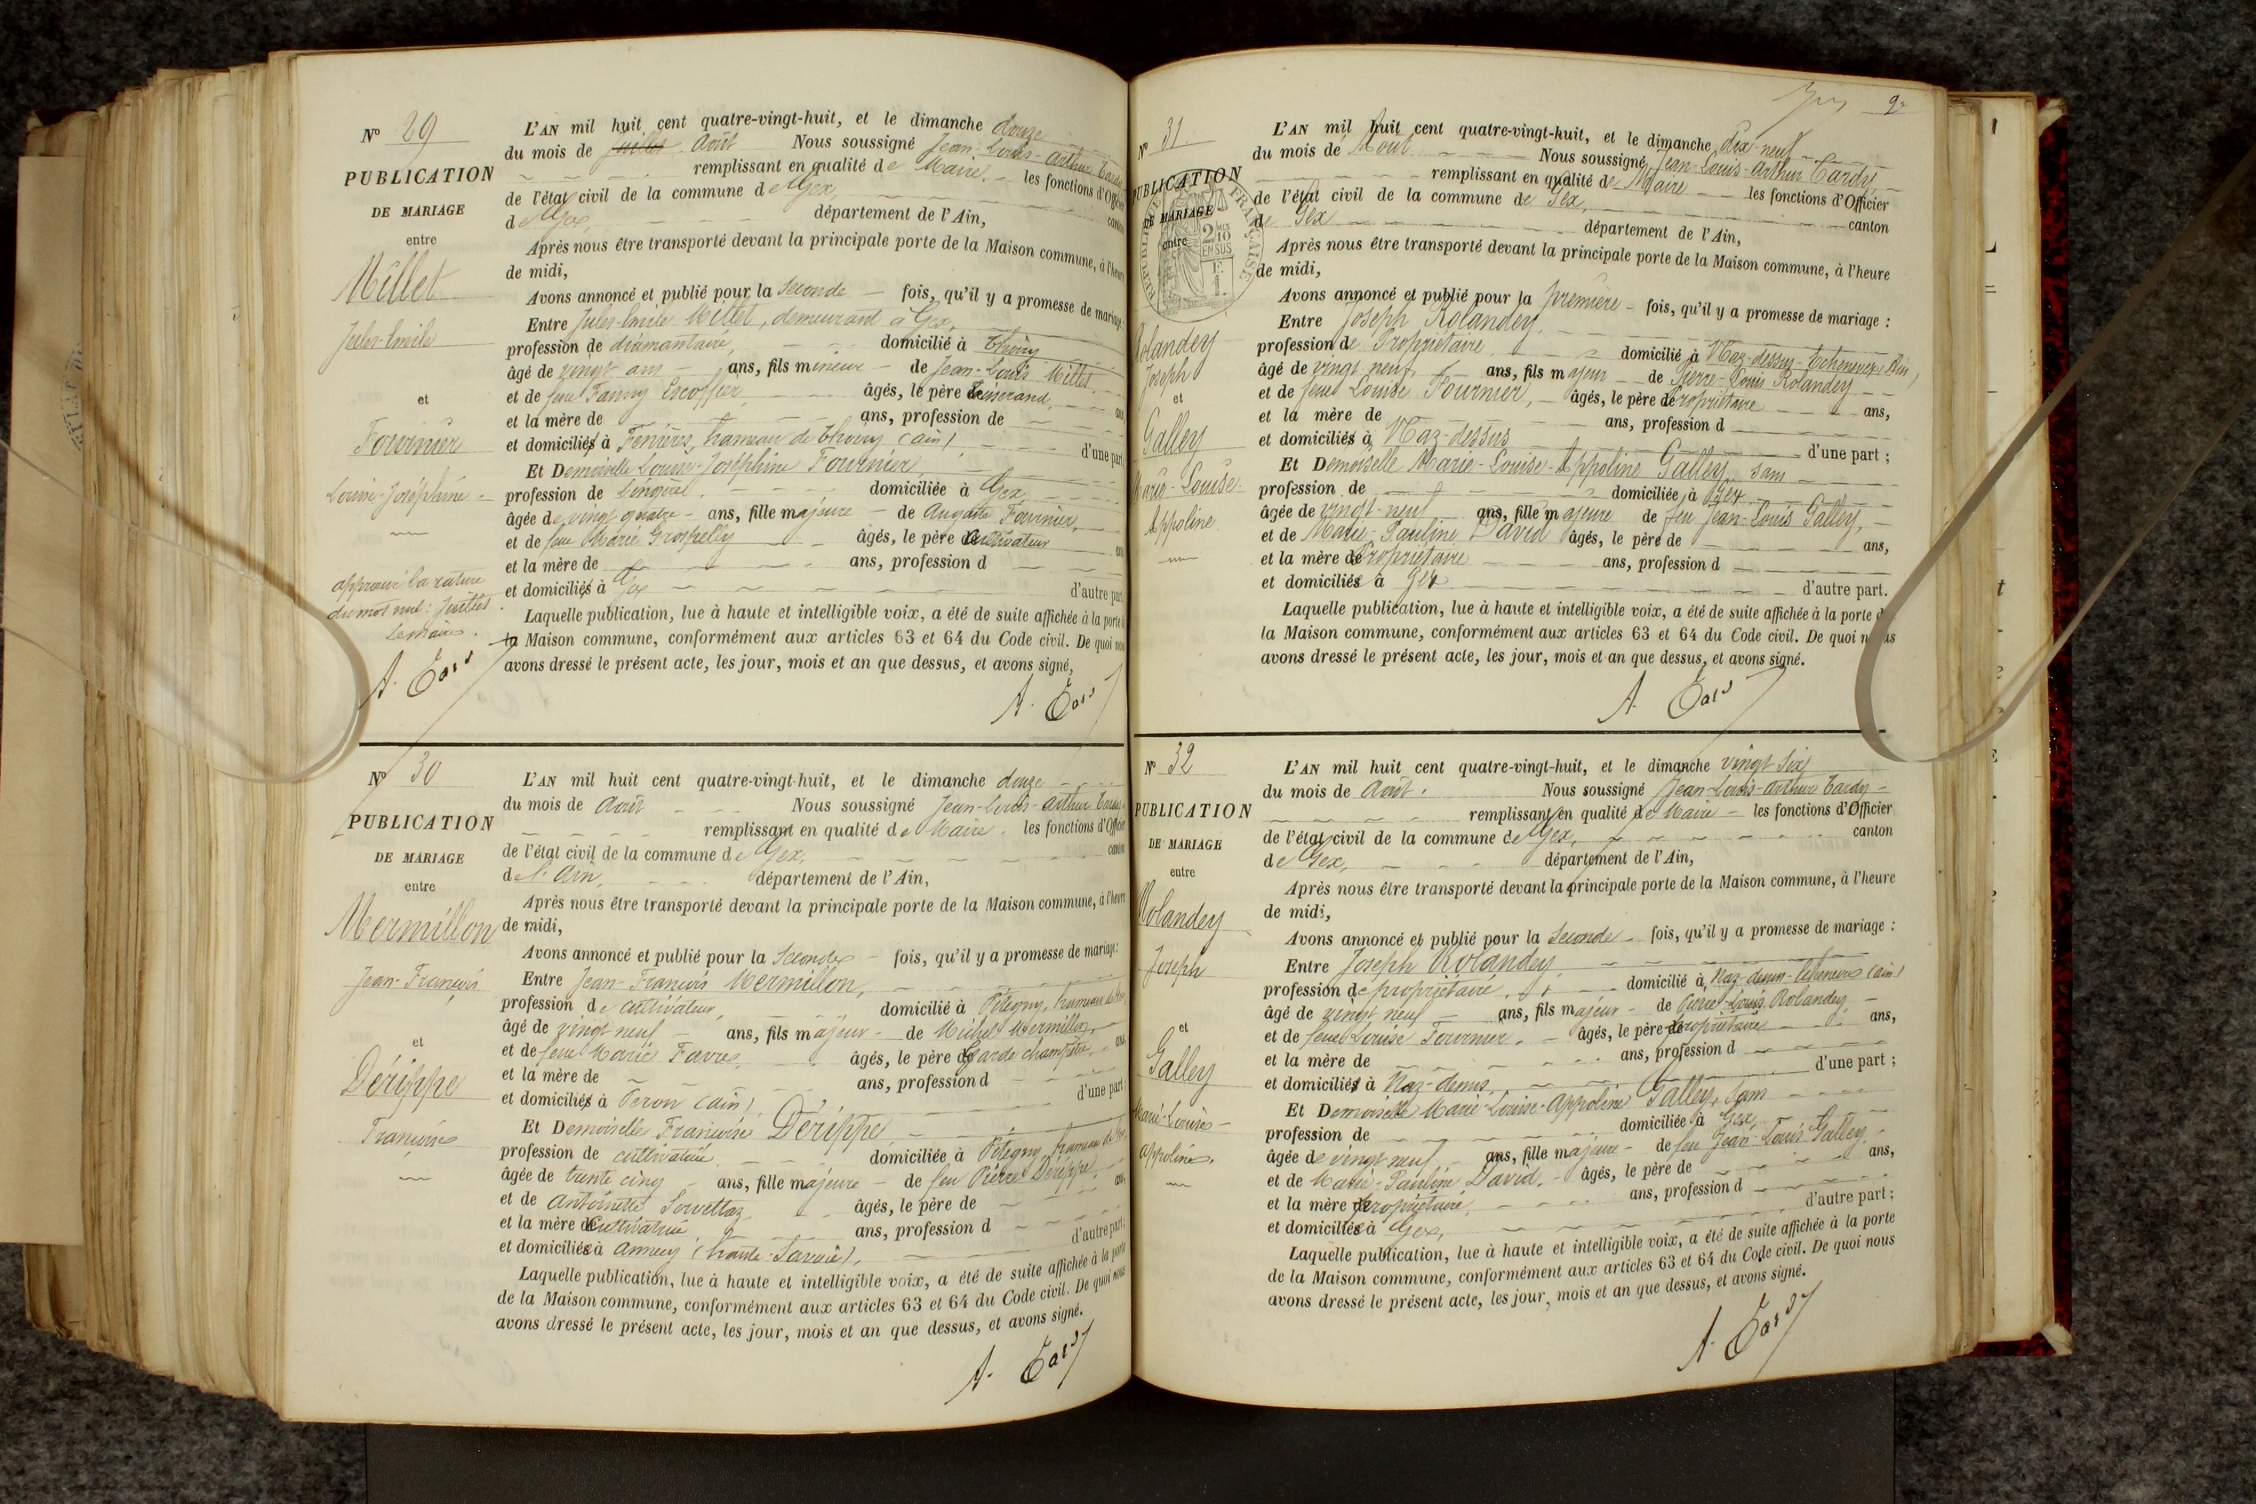 N° 29
PUBLICATION
DE MARIAGE
entre
Millet
Jules-Emile
et
Fournier
Louise-Joséphine
approuvé la rature
du mot nul : Juillet
Le maire.
A. Tardy
L'AN mil huit cent quatre-vingt-huit, et le dimanche douze
du mois de Juillet Août Nous soussigné Jean-Louis-Arthur Tardy
remplissant en qualité de Maire. les fonctions d'Officier
de l'état civil de la commune de Gex, canton
de Gex, département de l'Ain,
Après nous être transporté devant la principale porte de la Maison commune, à l'heure
de midi,
Avons annoncé et publié pour la Seconde fois, qu'il y a promesse de mariage :
Entre Jules-Emile Millet, demeurant à Gex,
profession de diamantaire, domicilié à Thoiry
âgé de vingt ans ans, fils mineur de Jean-Louis Millet
et de feue Fanny Escoffier, âgés, le père de Tisserand, ans,
et la mère de ans, profession de
et domiciliés à Fenières, hameau de Thoiry (ain) d'une part
Et Demoiselle Louise-Joséphine Fournier
profession de Lingère domiciliée à Gex
âgée de vingt quatre ans, fille majeure de Auguste Fournier,
et de feue Marie Grospelly âgés, le père de Cultivateur ans
et la mère de ans, profession d
et domiciliés à Gex d'autre part
Laquelle publication, lue à haute et intelligible voix, a été de suite affichée à la porte de
la Maison commune, conformément aux articles 63 et 64 du Code civil. De quoi nous
avons dressé le présent acte, les jour, mois et an que dessus, et avons signé,
A. Tardy
N° 30
PUBLICATION
DE MARIAGE
entre
Mermillon
Jean-François
et
Dérippe
Françoise
L'AN mil huit cent quatre-vingt-huit, et le dimanche douze
du mois de Août Nous soussigné Jean-Louis-Arthur Tardy
remplissant en qualité de Maire. les fonctions d'Officier
de l'état civil de la commune de Gex, canton
de l'Ain, département de l'Ain,
Après nous être transporté devant la principale porte de la Maison commune, à l'heure
de midi,
Avons annoncé et publié pour la Seconde fois, qu'il y a promesse de mariage :
Entre Jean-François Mermillon,
profession de cultivateur, domicilié à Pitegny, hameau de Gex,
âgé de vingt neuf ans, fils majeur de Michel Mermillon,
et de feue Marie Favre, âgés, le père de Garde champêtre, ans,
et la mère de ans, profession d
et domiciliés à Péron (ain) d'une part ;
Et Demoiselle Françoise Dérippe
profession de cultivatrice domiciliée à Pitegny, hameau de Gex,
âgée de trente cinq ans, fille majeure de feu Pierre Dérippe,
et de Antoinette âgés, le père de ans,
et la mère de Cultivatrice ans, profession d
et domiciliés à Annecy (haute-Savoie), d'autre part ;
Laquelle publication, lue à haute et intelligible voix, a été de suite affichée à la porte
de la Maison commune, conformément aux articles 63 et 64 du Code civil. De quoi nous
avons dressé le présent acte, les jour, mois et an que dessus, et avons signé.
A. Tardy
N° 31
PUBLICATION
DE MARIAGE
entre
RÉPUBLIQUE FRANÇAISE
2/10 EN SUS
Rolandey
Joseph
et
Galley
Marie-Louise
Appoline
L'AN mil huit cent quatre-vingt-huit, et le dimanche dix-neuf
du mois de Août Nous soussigné Jean-Louis-Arthur Tardy,
remplissant en qualité de Maire les fonctions d'Officier
de l'état civil de la commune de Gex, canton
de Gex département de l'Ain,
Après nous être transporté devant la principale porte de la Maison commune, à l'heure
de midi,
Avons annoncé et publié pour la première fois, qu'il y a promesse de mariage :
Entre Joseph Rolandey.
profession de Propriétaire domicilié à Naz-dessus-Echenevex (Ain)
âgé de vingt neuf, ans, fils majeur de Pierre-Louis Rolandey
et de feue Louise Fournier, âgés, le père de Propriétaire ans,
et la mère de ans, profession d
et domiciliés à Naz-dessus d'une part ;
Et Demoiselle Marie-Louise-Appoline Galley, sans
profession de domiciliée à Gex
âgée de vingt-neuf ans, fille majeure de feu Jean-Louis Galley,
et de Marie-Pauline David âgés, le père de ans,
et la mère de Propriétaire ans, profession d
et domiciliés à Gex d'autre part.
Laquelle publication, lue à haute et intelligible voix, a été de suite affichée à la porte de
la Maison commune, conformément aux articles 63 et 64 du Code civil. De quoi nous
avons dressé le présent acte, les jour, mois et an que dessus, et avons signé.
A. Tardy
N° 32
PUBLICATION
DE MARIAGE
entre
Rolandey
Joseph
et
Galley
Marie-Louise
Appoline,
L'AN mil huit cent quatre-vingt-huit, et le dimanche vingt Six
du mois de Août. Nous soussigné Jean-Louis-Arthur Tardy
remplissant en qualité de Maire les fonctions d'Officier
de l'état civil de la commune de Gex, canton
de Gex, département de l'Ain,
Après nous être transporté devant la principale porte de la Maison commune, à l'heure
de midi,
Avons annoncé et publié pour la Seconde fois, qu'il y a promesse de mariage :
Entre Joseph Rolandey
profession de propriétaire, domicilié à Naz-dessus-Echenevex (ain)
âgé de vingt neuf ans, fils majeur de Pierre-Louis Rolandey
et de feue Louise Fournier. âgés, le père de propriétaire ans,
et la mère de ans, profession d
et domiciliés à Naz-dessus, d'une part ;
Et Demoiselle Marie-Louise-Appoline Galley, sans
profession de domiciliée à Gex,
âgée de vingt neuf ans, fille majeure de feu Jean-Louis Galley
et de Marie-Pauline David, âgés, le père de ans,
et la mère de propriétaire, ans, profession d
et domiciliés à Gex, d'autre part ;
Laquelle publication, lue à haute et intelligible voix, a été de suite affichée à la porte
de la Maison commune, conformément aux articles 63 et 64 du Code civil. De quoi nous
avons dressé le présent acte, les jour, mois et an que dessus, et avons signé.
A. Tardy